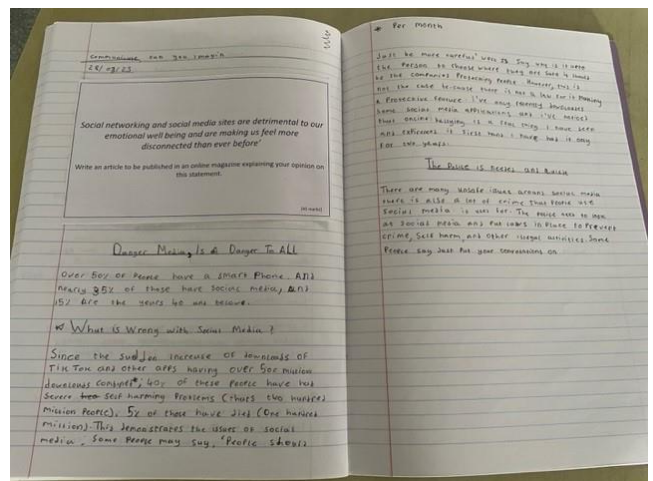 28/09/23
Social networking and social media sites are detrimental to our
emotional well being and are making us feel more
disconnected than ever before'
Write an article to be published in an online magazine explaining your opinion on
this statement.
Danger Media Is A Danger To ALL
Over 80% of People have a smart Phone. And
nearly 95% of those have social media, and
15% Are the years 40 and
* What is Wrong with Social Media ?
Since the sudden increase of downloads of
Tik Tok and other apps having over 500 million
downloads 40% of these People have had
severe self harming Problems (thats two hundred
million People). 5% of those have died (One hundred
million). This demonstrates the issues of social
media. Some People may say, 'People should
* Per month
Just be more careful' well I say why is it
the Person to choose where they are safe it should
be the companies Protecting People. However, this is
not the case because there is not a law for it making
a Protective feature. I've only recently downloaded
some social media applications and i've noticed
that online bullying is a real thing. I have seen
and it first hand I have had it only
for two years.
The Police is needed and
There are many unsafe issues around social media
there is also a lot of crime that People use
social media is used for. The Police need to look
at social media and Put laws in Place to Prevent
crime, self harm, and other illegal activities. Some
People say Just Put your conversations on